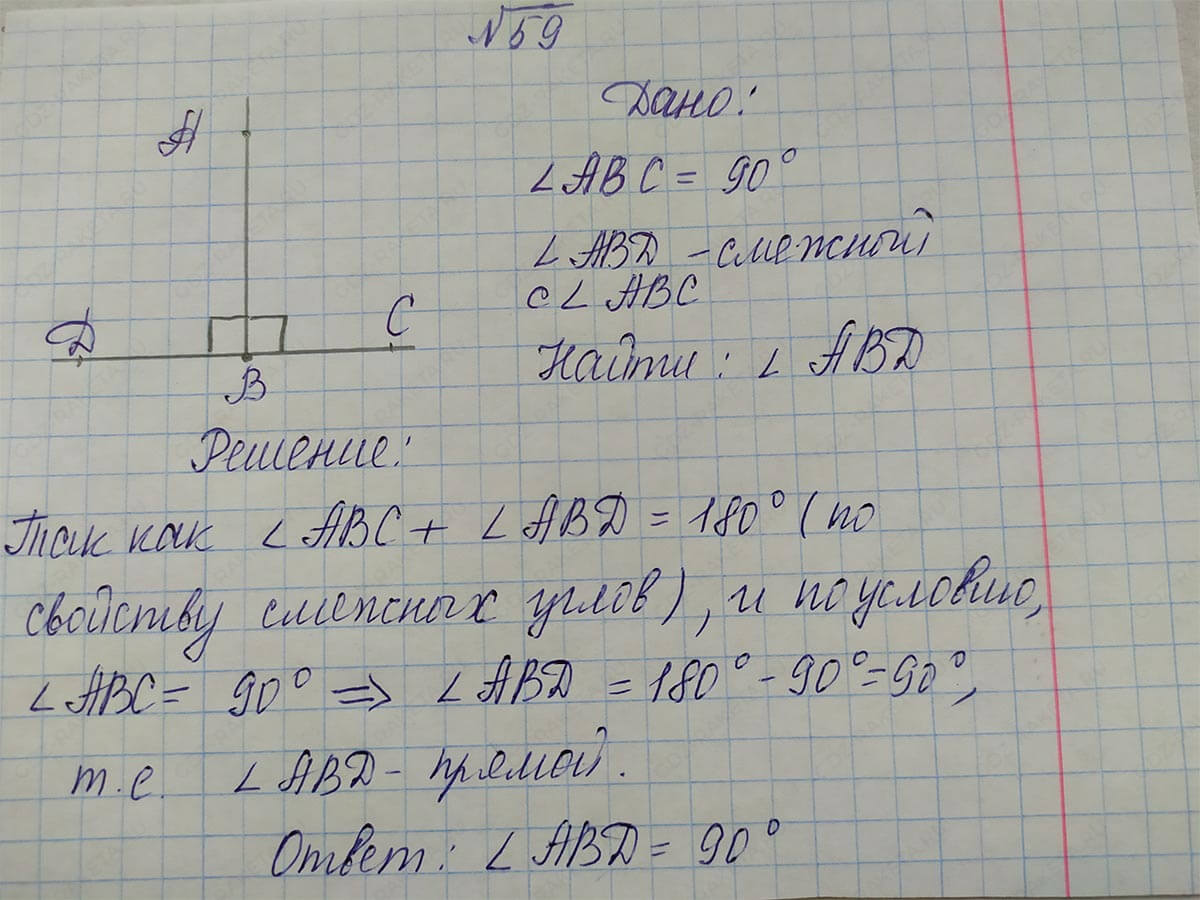 №59
Дано:
∠ABC = 90°
∠ABD - смежный
с ∠ ABC
Найти: ∠ ABD
A
D
C
B
Решение:
Так как ∠ABC + ∠ABD = 180° (по
свойству смежных углов), и по условию,
∠ABC = 90° ⇒ ∠ABD = 180° - 90° = 90°,
т.е. ∠ABD - прямой.
Ответ: ∠ABD = 90°